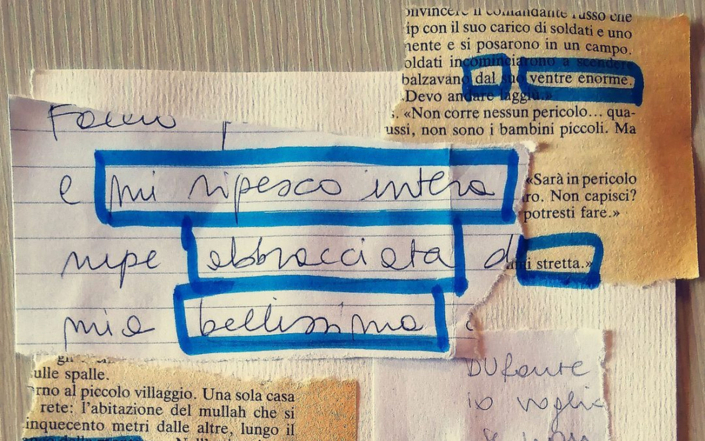 convincere il comandante russo che
ip con il suo carico di soldati e uno
nente e si posarono in un campo.
oldati incominciarono a scendere
balzavano dal suo ventre enorme.
Devo andare laggiù.»
. «Non corre nessun pericolo... qua-
ussi, non sono i bambini piccoli. Ma
«Sarà in pericolo
ro. Non capisci?
potresti fare.»
i stretta.»
e mi ripesco intera
abbracciata d
mia bellissima
ulle spalle.
rno al piccolo villaggio. Una sola casa
rete: l'abitazione del mullah che si
inquecento metri dalle altre, lungo il
Durante
io voglio